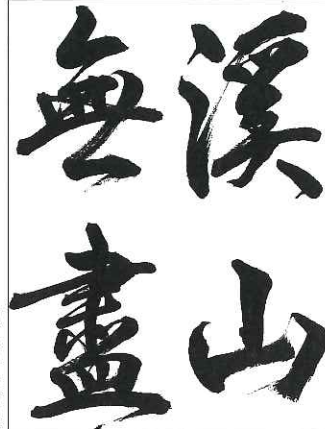 溪山
無盡